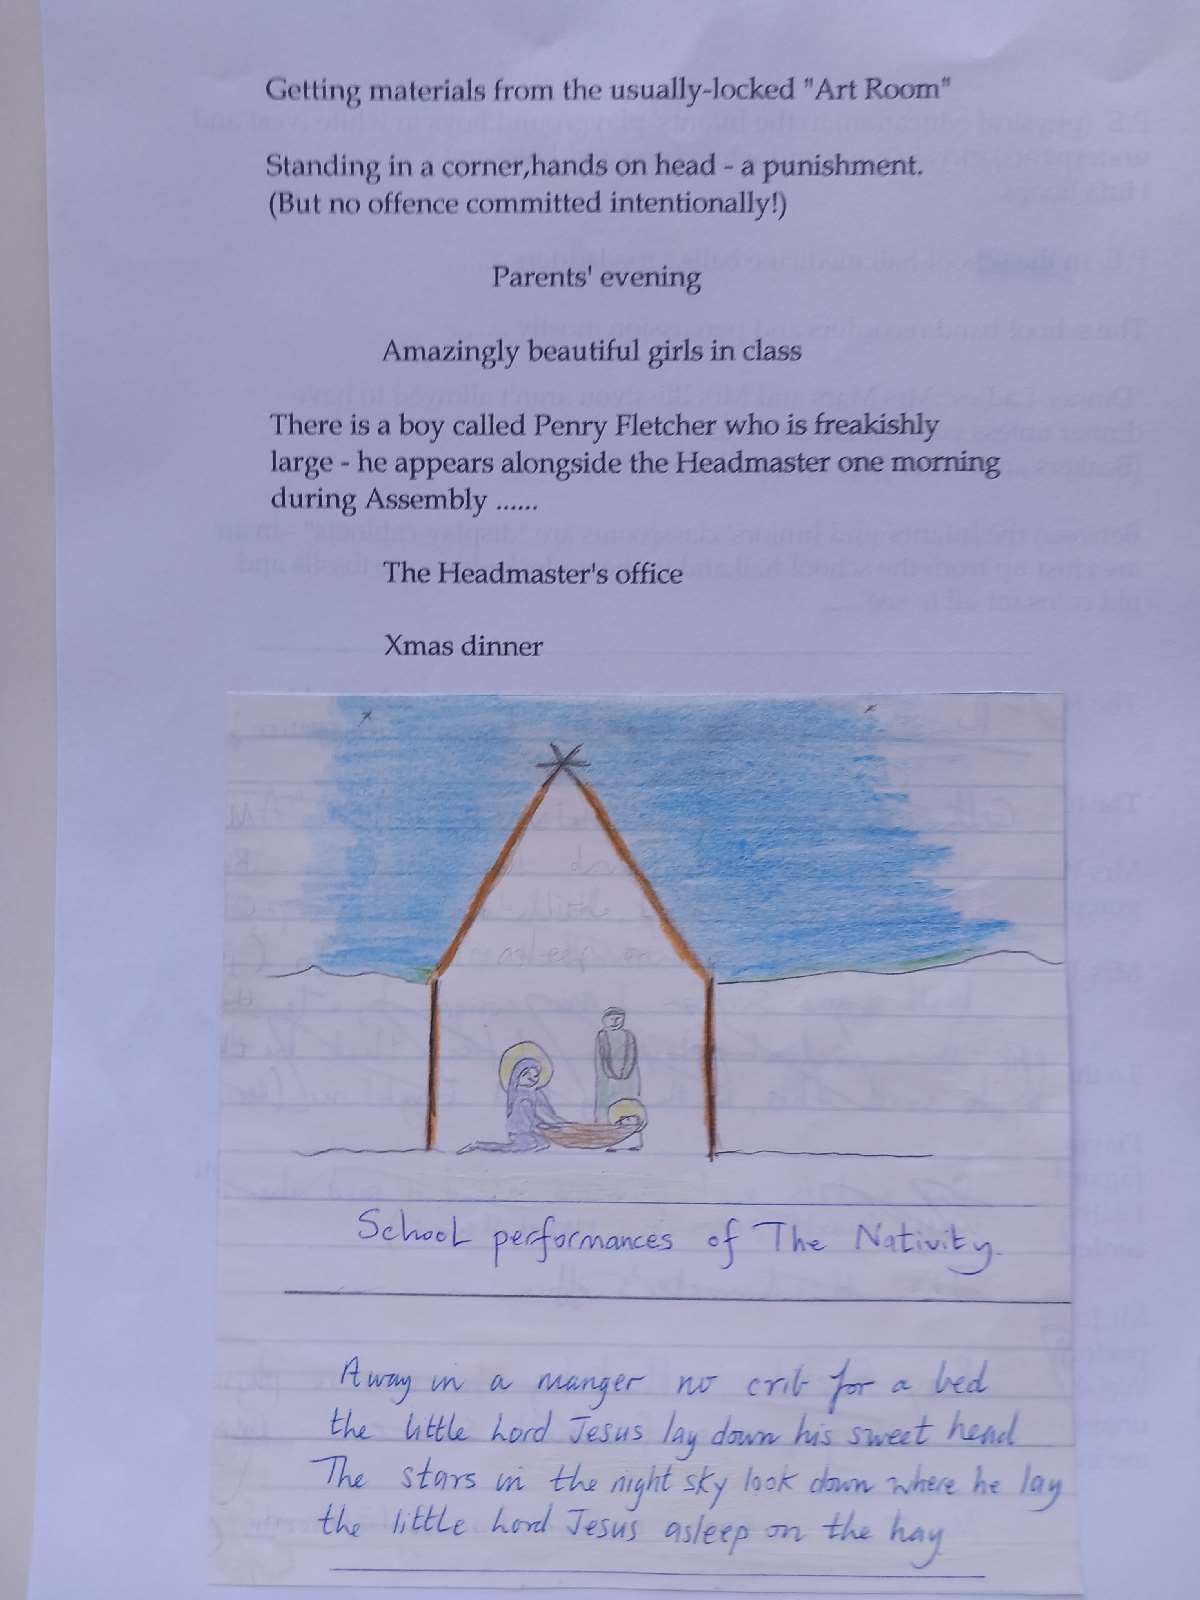 Getting materials from the usually-locked "Art Room"
Standing in a corner,hands on head - a punishment.
(But no offence committed intentionally!)
Parents' evening
Amazingly beautiful girls in class
There is a boy called Penry Fletcher who is freakishly
large - he appears alongside the Headmaster one morning
during Assembly ......
The Headmaster's office
Xmas dinner
School performances of The Nativity.
Away in a manger no crib for a bed
the little Lord Jesus lay down his sweet head
The stars in the night sky look down where he lay
the little Lord Jesus asleep on the hay